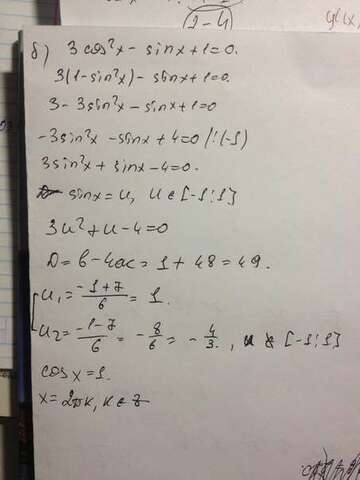 1-4
б) 3cos²x - sinx + 1 = 0.
3(1-sin²x) - sinx + 1 = 0.
3 - 3sin²x - sinx + 1 = 0
-3sin²x - sinx + 4 = 0 / :(-1)
3sin²x + sinx - 4 = 0.
sinx = u, u ∈ [-1;1]
3u² + u - 4 = 0
D = b - 4ac = 1 + 48 = 49.
u₁ = (-1+7)/6 = 1.
u₂ = (-1-7)/6 = -8/6 = -4/3., u ∉ [-1;1]
cosx = 1.
x = 2πk, k ∈ z